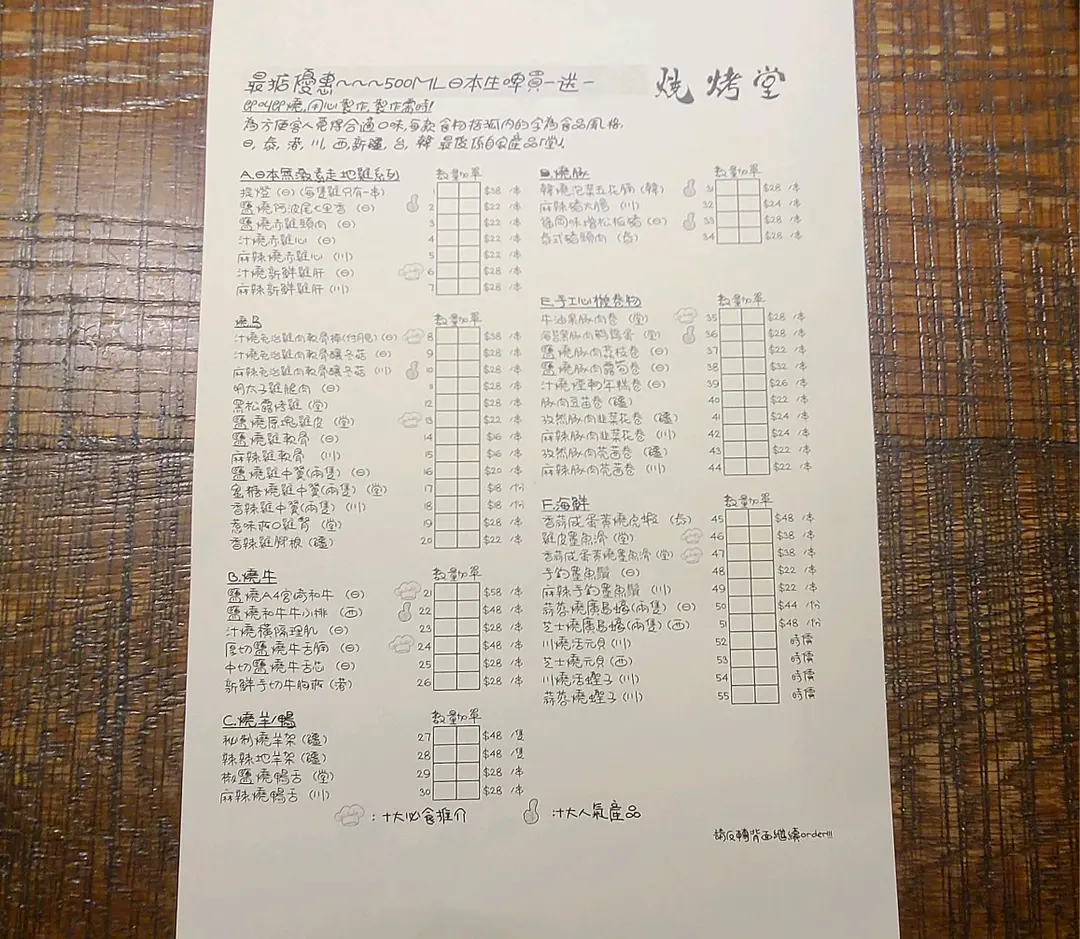 最抵優惠~~~500ML日本生啤買一送一
燒烤堂
即叫即燒,用心製作,製作需時!
為方便客人覓得合適口味,每款食物括弧內的字為食品風格,
日, 泰, 港, 川, 西, 新疆, 台, 韓 最後仲有自家產品(堂)!
A.日本無激素走地雞系列 數量 加單
提燈 (日) (每隻雞只有一串) 1 $38 /串
鹽燒阿波尾七里香 (日) 2 $22 /串
鹽燒赤雞頸肉 (日) 3 $22 /串
汁燒赤雞心 (日) 4 $22 /串
麻辣燒赤雞心 (川) 5 $22 /串
汁燒新鮮雞肝 (日) 6 $28 /串
麻辣新鮮雞肝 (川) 7 $28 /串
燒鳥 數量 加單
汁燒免治雞肉軟骨棒(付月見) (日) 8 $38 /串
汁燒免治雞肉軟骨釀冬菇 (日) 9 $28 /串
麻辣免治雞肉軟骨釀冬菇 (川) 10 $28 /串
明太子雞腿肉 (日) 11 $28 /串
黑松露燒雞 (堂) 12 $28 /串
鹽燒原塊雞皮 (堂) 13 $22 /串
鹽燒雞軟骨 (日) 14 $16 /串
麻辣雞軟骨 (川) 15 $16 /串
鹽燒雞中翼(兩隻) (日) 16 $20 /串
蜜糖燒雞中翼(兩隻) (堂) 17 $18 /份
香辣雞中翼(兩隻) (川) 18 $18 /份
惹味爽口雞腎 (堂) 19 $28 /串
香辣雞髀根 (疆) 20 $22 /串
B.燒牛 數量 加單
鹽燒A4宮崎和牛 (日) 21 $58 /串
鹽燒和牛牛小排 (西) 22 $48 /串
汁燒橫隔理肌 (日) 23 $28 /串
厚切鹽燒牛舌脷 (日) 24 $48 /串
中切鹽燒牛舌芯 (日) 25 $28 /串
新鮮手切牛胸爽 (港) 26 $28 /串
C.燒羊/鴨 數量 加單
秘制燒羊架 (疆) 27 $48 /隻
辣辣地羊架 (疆) 28 $48 /隻
椒鹽燒鴨舌 (堂) 29 $28 /串
麻辣燒鴨舌 (川) 30 $28 /串
D.燒豚 數量 加單
韓燒泡菜五花腩 (韓) 31 $28 /串
麻辣豬大腸 (川) 32 $24 /串
福岡味增松板豬 (日) 33 $28 /串
泰式豬頸肉 (泰) 34 $28 /串
E.手工心機卷物 數量 加單
牛油果豚肉卷 (堂) 35 $28 /串
海苔黑豚肉鵪鶉蛋 (堂) 36 $28 /串
鹽燒豚肉荔枝卷 (日) 37 $22 /串
鹽燒豚肉露筍卷 (日) 38 $32 /串
汁燒煙鴨年糕卷 (日) 39 $26 /串
豚肉豆苗卷 (疆) 40 $22 /串
孜然豚肉韭菜花卷 (疆) 41 $24 /串
麻辣豚肉韭菜花卷 (川) 42 $24 /串
孜然豚肉芫茜卷 (疆) 43 $22 /串
麻辣豚肉芫茜卷 (川) 44 $22 /串
F.海鮮 數量 加單
香蒜咸蛋黃燒虎蝦 (泰) 45 $48 /串
雞皮墨魚滑 (堂) 46 $38 /串
香蒜咸蛋黃燒墨魚滑 (堂) 47 $38 /串
手釣墨魚鬚 (日) 48 $22 /串
麻辣手釣墨魚鬚 (川) 49 $22 /串
蒜蓉燒廣島蠔(兩隻) (日) 50 $44 /份
芝士燒廣島蠔(兩隻) (西) 51 $48 /份
川燒活元貝 (川) 52 時價
芝士燒元貝 (西) 53 時價
川燒活蟶子 (川) 54 時價
蒜蓉燒蟶子 (川) 55 時價
:十大必食推介
:十大人氣產品
請反轉背面繼續order!!!